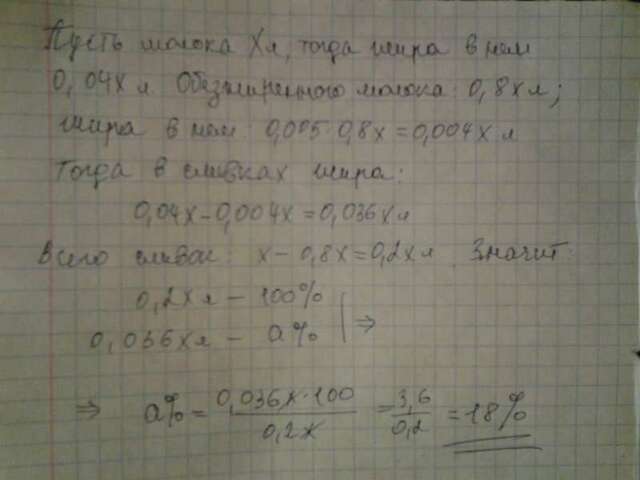 Пусть молока Xл, тогда жира в нем
0,04x л Обезжиренного молока: 0,8x л;
жира в нем: 0,005·0,8x=0,004x л
Тогда в сливках жира:
0,04x-0,004x=0,036x л
Всего сливок: x-0,8x=0,2x л. Значит:
0,2x л - 100%
0,036x л - a% | ⇒
⇒ a% = 0,036x·100/0,2x = 3,6/0,2 = 18%